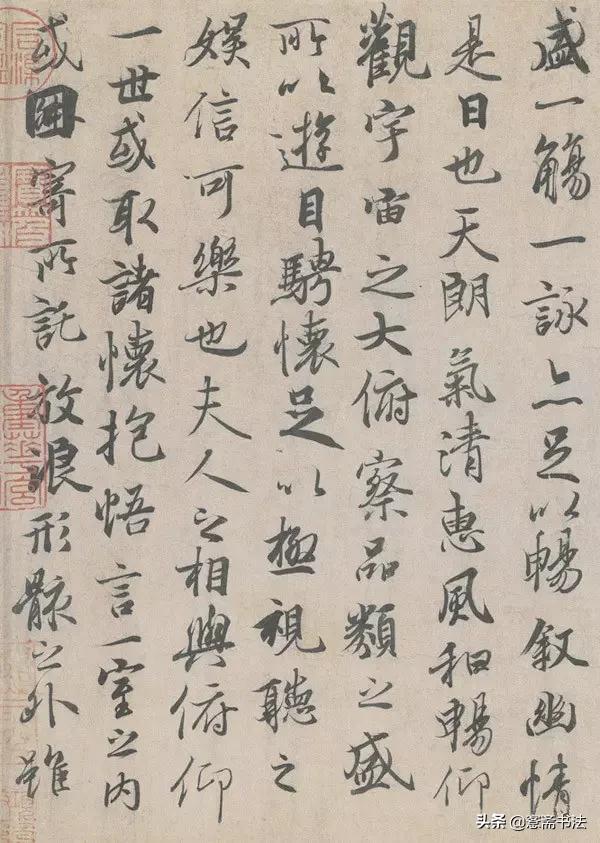 盛一觴一詠亦足以暢叙幽情
是日也天朗氣清惠風和暢仰
觀宇宙之大俯察品類之盛
所以遊目騁懷足以極視聽之
娛信可樂也夫人之相與俯仰
一世或取諸懷抱悟言一室之内
或因寄所託放浪形骸之外雖
头条 @愙斋书法